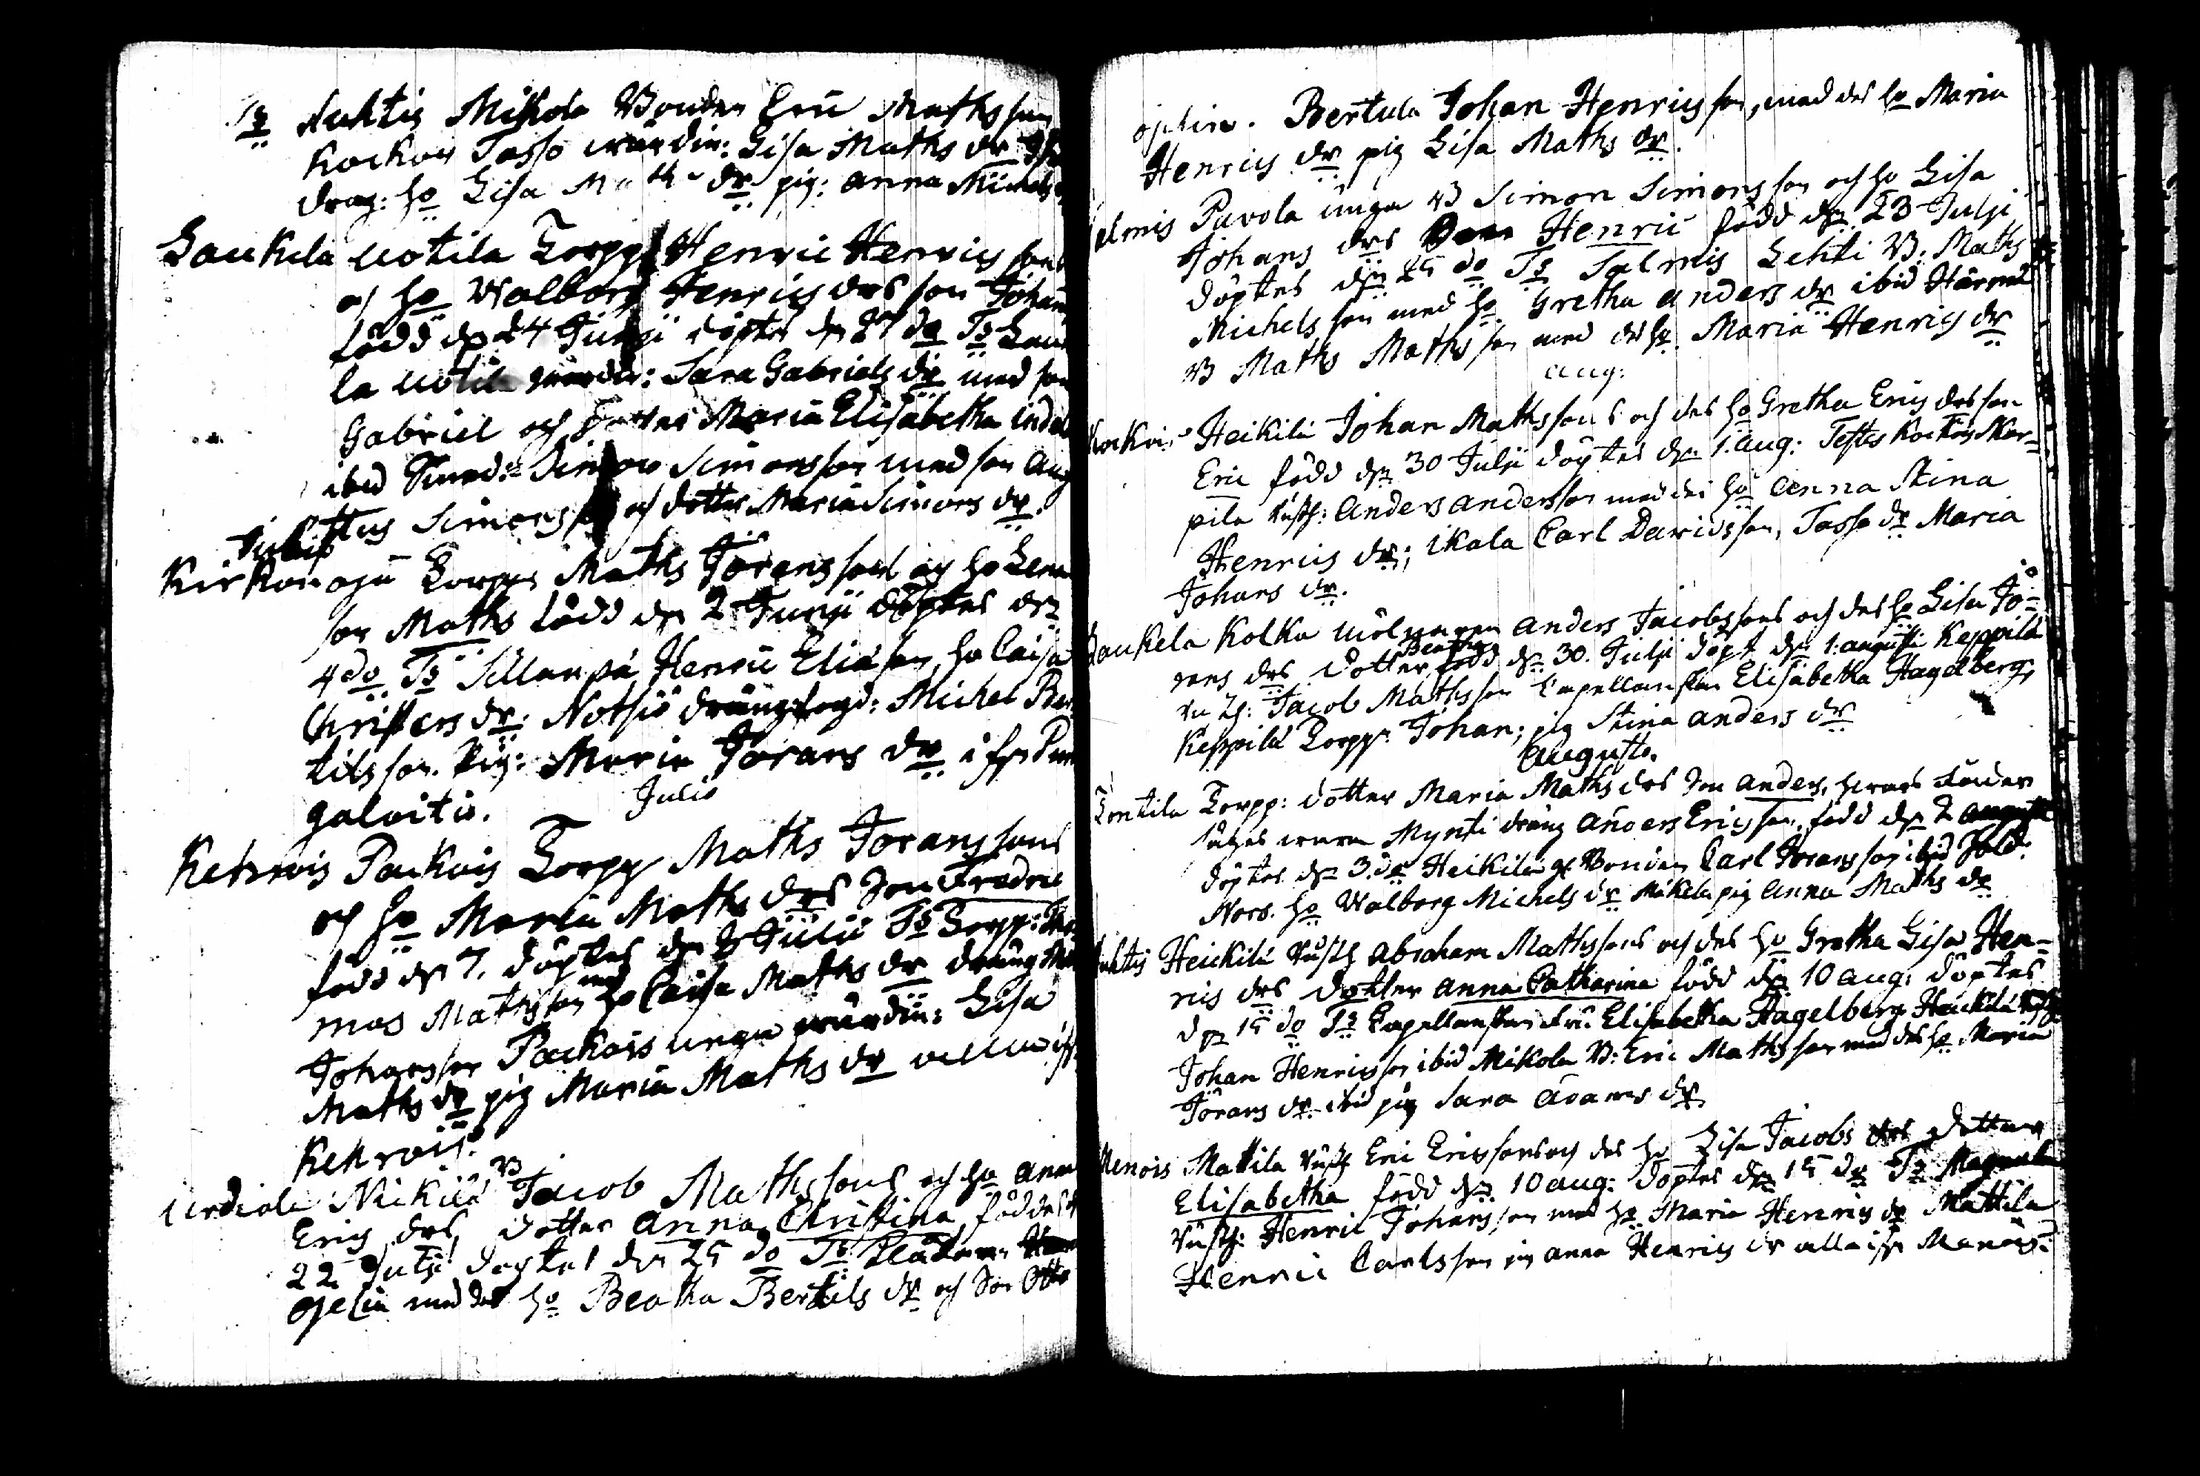 Ts Auhtis Mikola Bonden Eric Mathsson
Kockois Tasso wärdin: Lisa Maths dr
dräng: ho Lisa Maths dr pig: Anna Michels
Laukela Uotila Torpp Henric Henricssons
och ho Walborg Henrics drs son Johan
född dn 24 Junii döptes dn 27 do Ts Lauke
la Uotila wärdin: Sara Gabriels dr med son
Gabriel och Dotter Maria Elisabetha
ibid Smed: Simon Simonsson med son Aug
ustus Simonsson och dotter Maria Simons dr.
Julius
Kirkonoja Torpps Maths Jöransson och ho Lena
son Maths född dn 2 Junii döptes dn
4 do Ts Sillanpä Henric Eliasson, ho Caisa
Christers dr: Notsiö drängfogd: Michel Ber
tilsson. Pig: Maria Jörans dr ifr Pun
galaitio.
Julio
Kehrois Paukois Torpp Maths Joranssons
och ho Maria Maths drs Son Fredric
född dn 7. döptes dn 9 Julii Ts Torpp: Tho
mas Mathsson med ho Caisa Maths dr dräng
Johansson Paukois unga wärdin: Lisa
Maths dr pig Maria Maths dr alla ifr
Kehrois.
Urdiala Nickilä B Jacob Mathssons och ho Anna
Erics drs dotter Anna Christina, föddes
22 Julii döptes dn 25 do Ts Klockaren
Ojelin med des ho Beatha Bertils dr och Son Otto
Ojelin. Bertula Johan Henricsson, med des ho Maria
Henrics dr pig Lisa Maths dr.
Salmis Pavola unga B Simon Simonsson och ho Lisa
Johans drs Son Henric född dn 23 Julii
döptes dn 25 do Ts Salmis Lehti B: Maths
Michelsson med ho Gretha Anders dr ibid
B Maths Mathsson med des ho. Maria Henrics dr
Aug:
Kockois Heikilä Johan Mathssons och des ho Gretha Erics drs son
Eric född dn 30 Julii döptes dn 1. Aug: Testes Kockois Kor-
pila Rusth: Anders Andersson med des ho Anna Stina
Henrics dr; Ikala Carl Davidsson, Tasso dr Maria
Johans dr.
Laukela Kolka mölnaren Anders Jacobssons och des ho Lisa Jö-
rens drs Dotter Beatha född dn 30. Julii döpt dn 1. augusti Keppilä
Jacob Mathsson Capellanskan Elisabetha Hagelberg,
Keppilä Torpp: Johan; pig Stina Anders dr
Augusto.
Torpp: dotter Maria Maths drs Son Anders, hwars fader
säges wara Mynti dräng Anders Ericsson, född dn 2 Augusti
döptes dn 3 do Heikilä Bonden Carl Joransson ibid
Nors. ho Walborg Michels dr Mikola pig Anna Maths dr
Auhtis Heickilä Rusth Abraham Mathssons och des ho Gretha Lisa Hen-
rics drs Dotter Anna Catharina född dn 10 aug: döptes
dn 15 do Ts Capellanskan Fru Elisabetha Hagelberg Heickilä
Johan Henricsson ibid Mikola B: Eric Mathsson med des ho Maria
Jörans dr ibid pig Sara Adams dr
Menois Mattila Rusth Eric Ericssons och des ho Lisa Jacobs drs Dotter
Elisabetha född dn 10 aug: döptes dn 15 do Ts
Rusth: Henric Johansson med ho Maria Henrics dr Mattila
Henric Carlsson pig Anna Henrics dr alla ifr Menois: